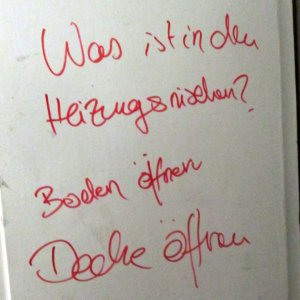 Was ist in den
Heizungsnischen?
Boden öffnen
Decke öffnen